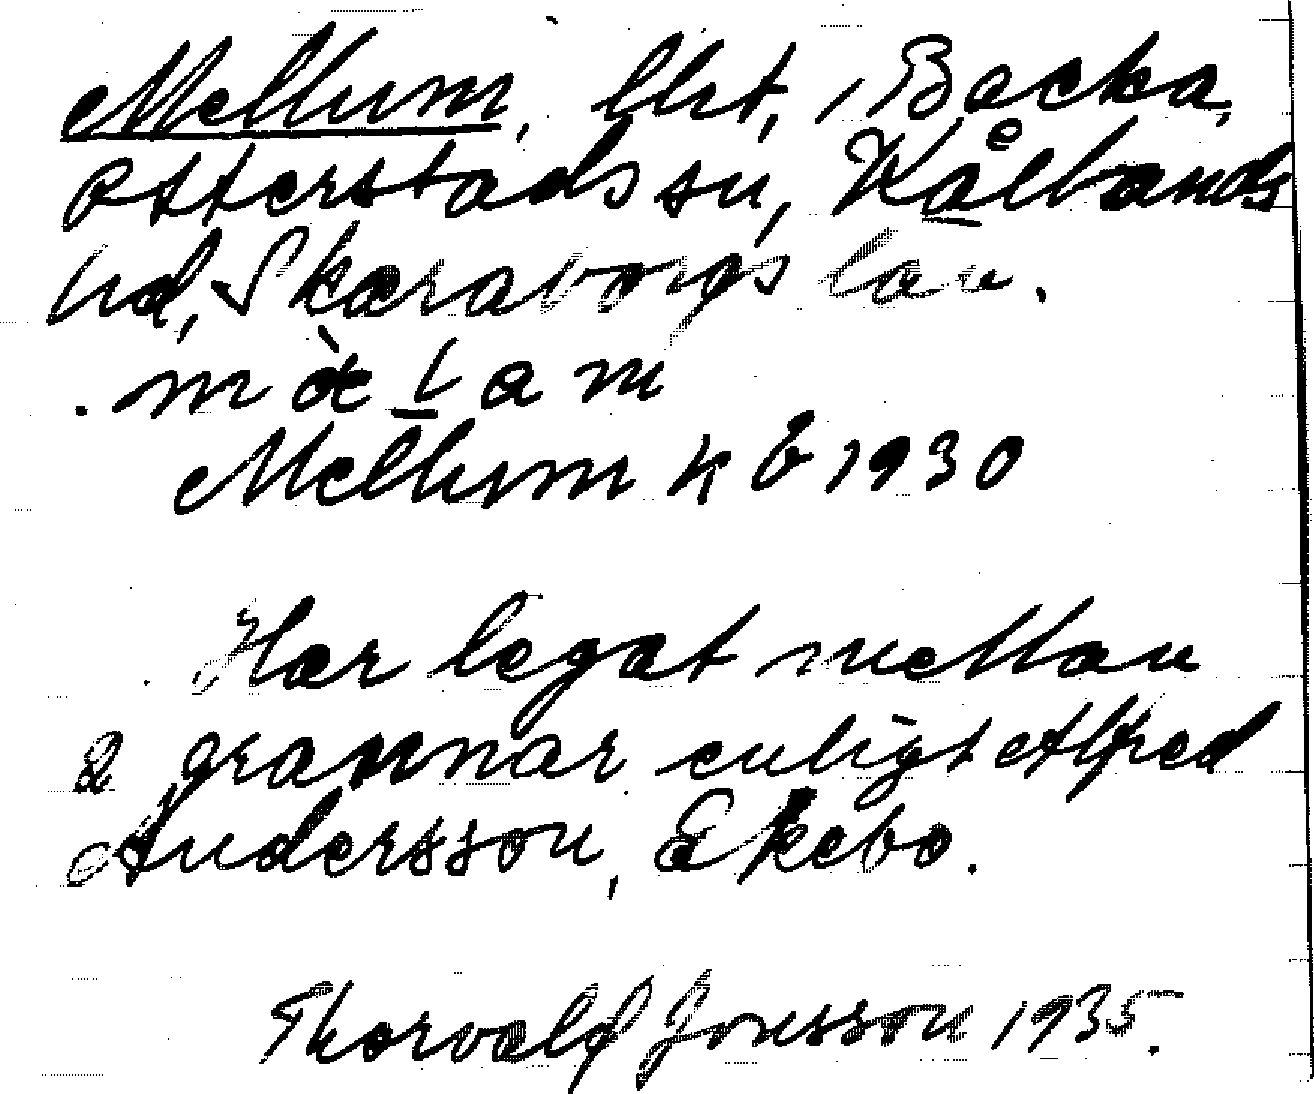 Mellum, lht, i Backa,
Otterstads sn, Kållands
hd, Skaraborgs län.
mæ̀lam
Mellum 1930
Har legat mellan
2 grannar enligt Alfred
Andersson, Ekebo.
Thorvald Jonsson 1935.